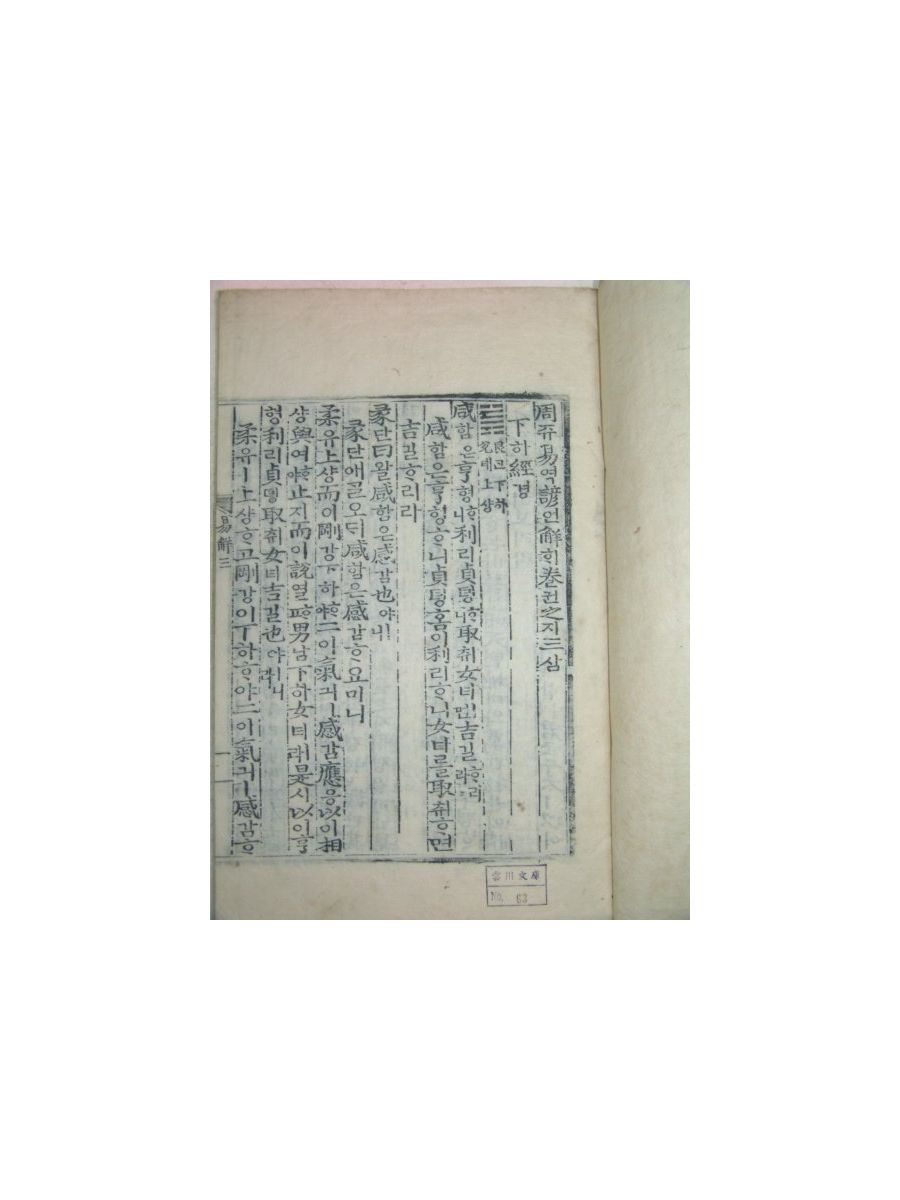 周쥬易역諺언解ᄒᆡ卷권之지三삼
下하經경
艮간下하
兌태上샹
咸함은亨형ᄒᆞ니利리貞뎡ᄒᆞ니取츄女녀면吉길ᄒᆞ리라
咸함은亨형ᄒᆞ니貞뎡홈이利리ᄒᆞ니女녀를取츄ᄒᆞ면
吉길ᄒᆞ리라
彖단曰왈咸함은感감也야니
彖단애ᄀᆞᆯ오ᄃᆡ咸함은感감ᄒᆞ요미니
柔유上샹而이剛강下하ᄒᆞ야二이氣긔ㅣ感감應응以이相
샹與여ᄒᆞ야止지而이說열ᄒᆞ고男남下하女녀ㅣ라是시以이亨
형利리貞뎡取츄女녀吉길也야ㅣ니
柔유ㅣ上샹ᄒᆞ고剛강이下하ᄒᆞ야二이氣긔ㅣ感감ᄒᆞ
易解三
一
雲川文庫
No. 63